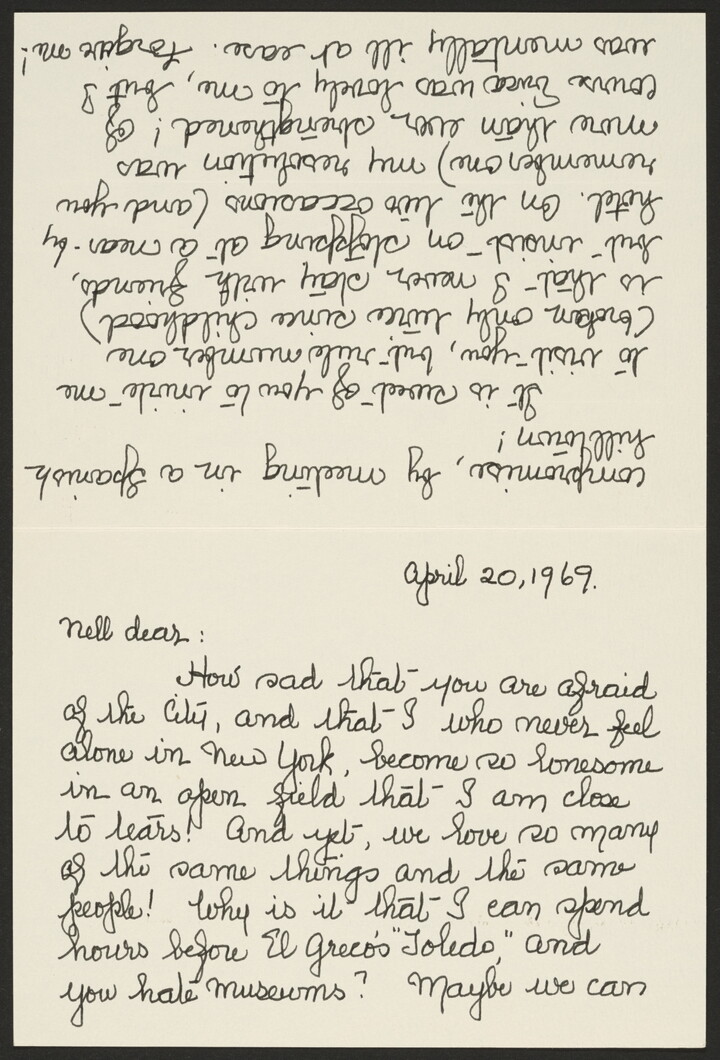 April 20, 1969.
Nell dear:
How sad that you are afraid
of the City, and that I who never feel
alone in New York, become so lonesome
in an open field that I am close
to tears! And yet, we love so many
of the same things and the same
people! Why is it that I can spend
hours before El Greco's "Toledo," and
you hate museums? Maybe we can
compromise, by meeting in a Spanish
hilltown!
It is sweet of you to invite me
to visit you, but rule number one
(broken only twice since childhood)
is that I never stay with friends,
but insist on stopping at a near-by
hotel. On the two occasions (and you
remember one) my resolution was
more than ever strengthened! Of
course Erica was lovely to me, but I
was mentally ill at ease. Forgive me!